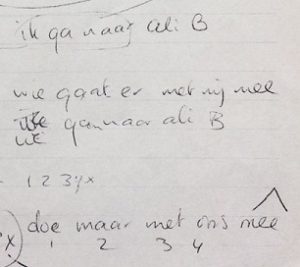 ik ga naar ali B
wie gaat er met mij mee
we gannaar ali B
- 1 2 3 4 x
doe maar met ons mee
x 1 2 3 4